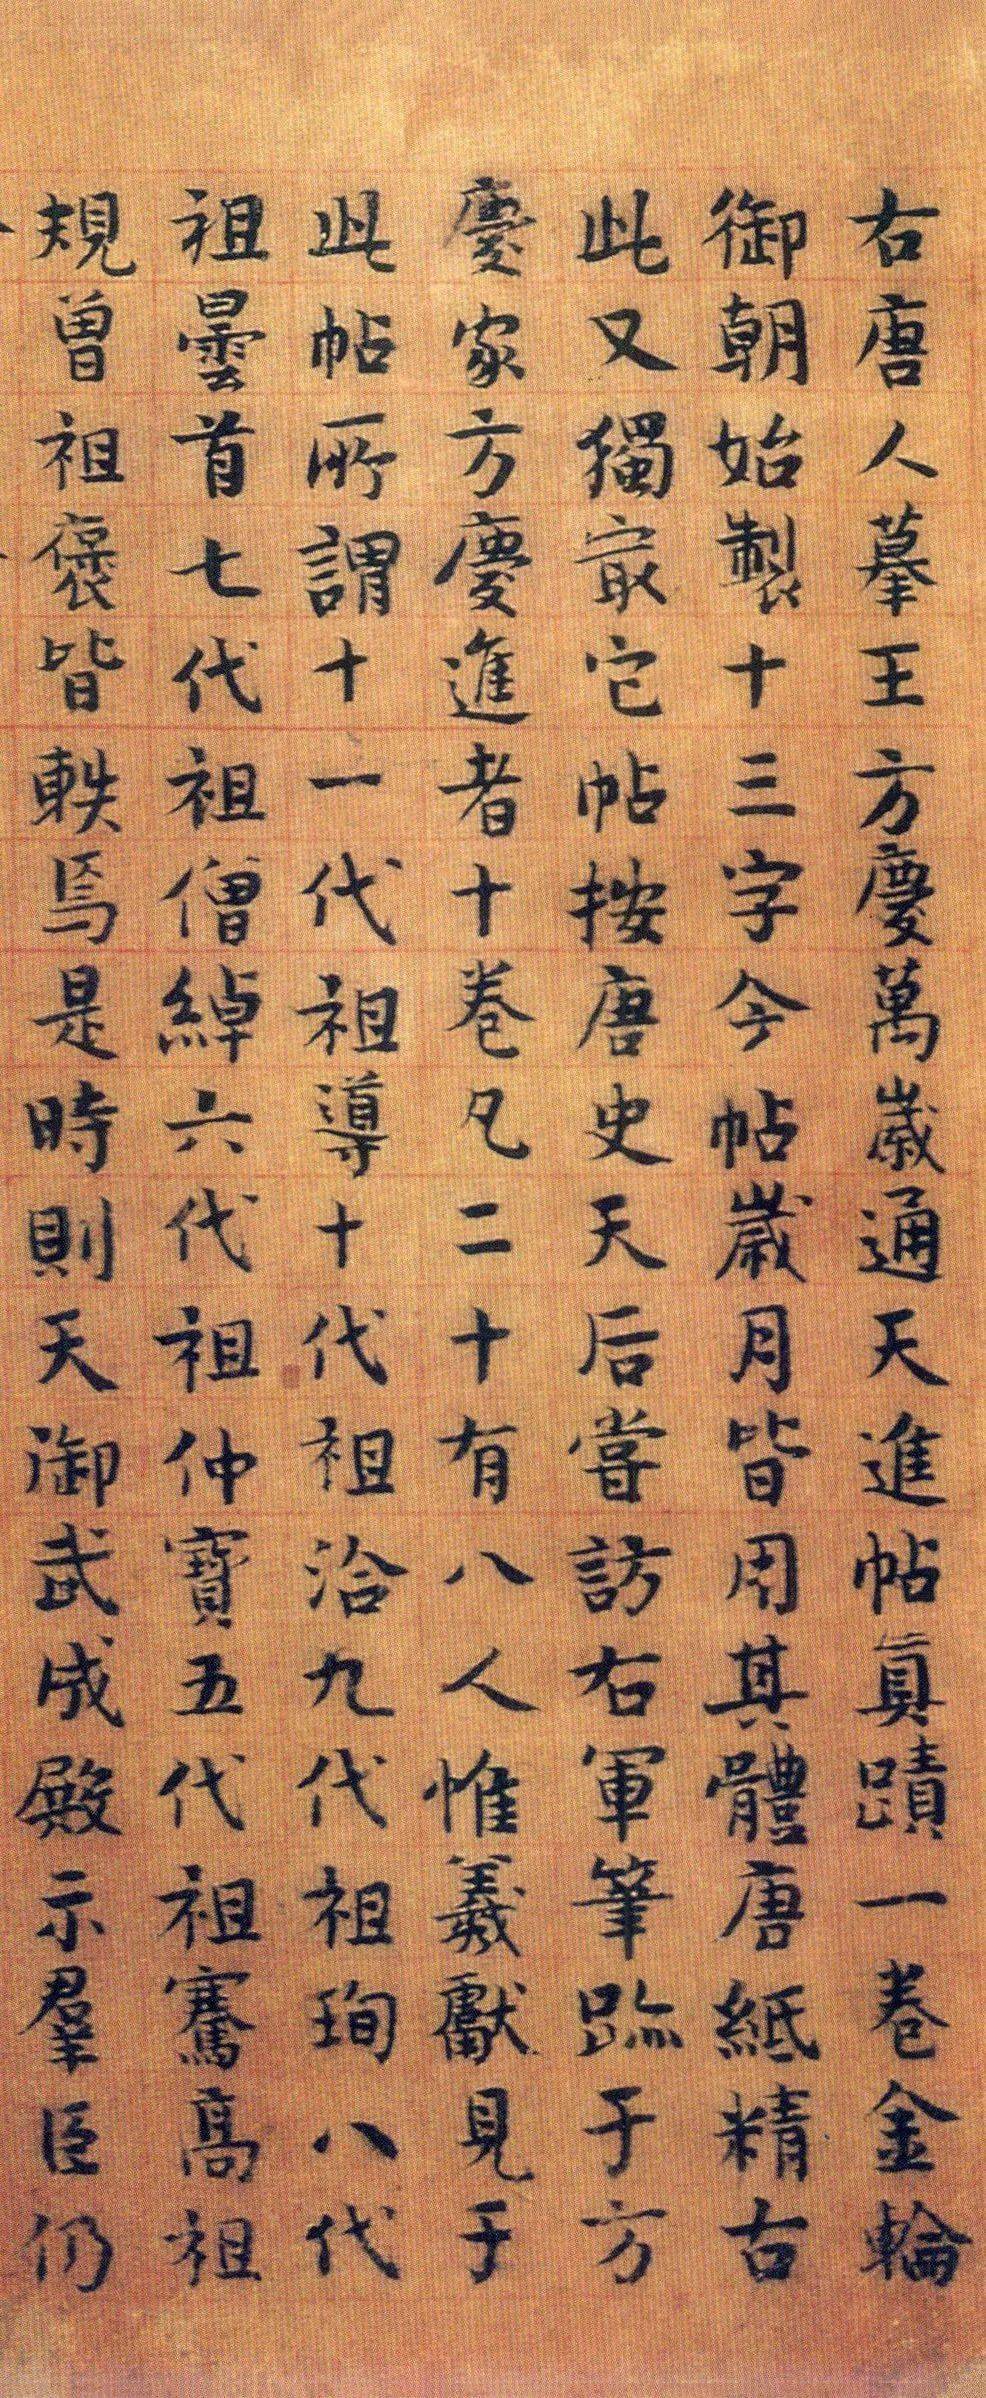 右唐人摹王方慶萬歲通天進帖真蹟一卷金輪
御朝始製十三字今帖歲月皆用其體唐紙精古
此又獨最它帖按唐史天后嘗訪右軍筆跡于方
慶家方慶進者十卷凡二十有八人惟羲獻見于
此帖所謂十一代祖導十代祖洽九代祖珣八代
祖曇首七代祖僧綽六代祖仲寶五代祖騫高祖
規曾祖褒皆軼焉是時則天御武成殿示羣臣仍